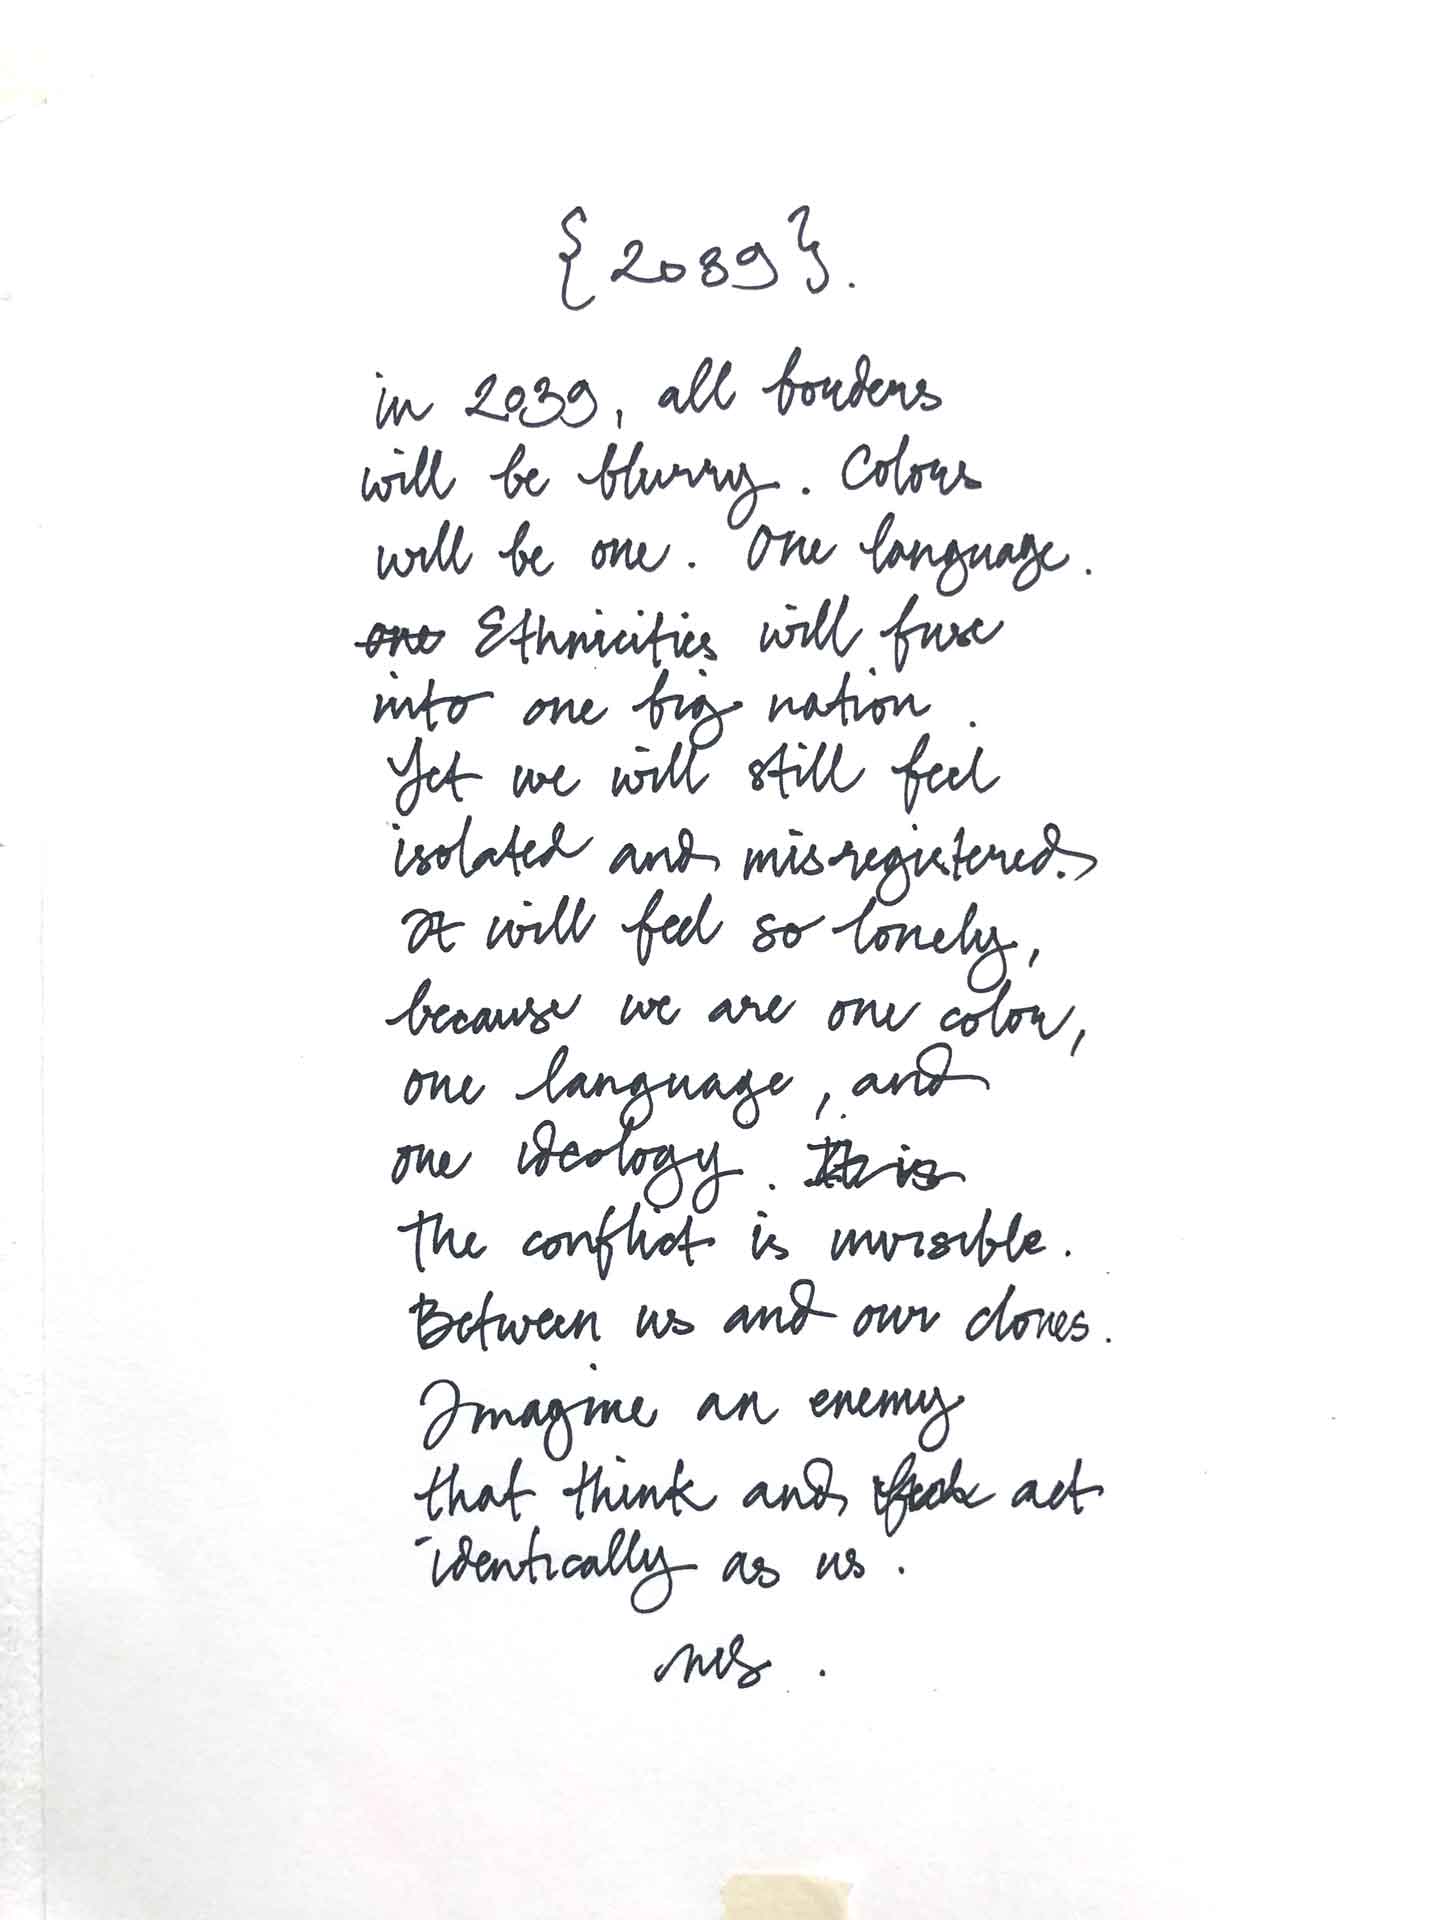 {2039}.
in 2039, all borders
will be blurry. Colors
will be one. One language.
one Ethnicities will fuse
into one big nation.
Yet we will still feel
isolated and misregistered.
It will feel so lonely,
because we are one color,
one language, and
one ideology. It is
The conflict is invisible.
Between us and our clones.
Imagine an enemy
that think and act
identically as us.